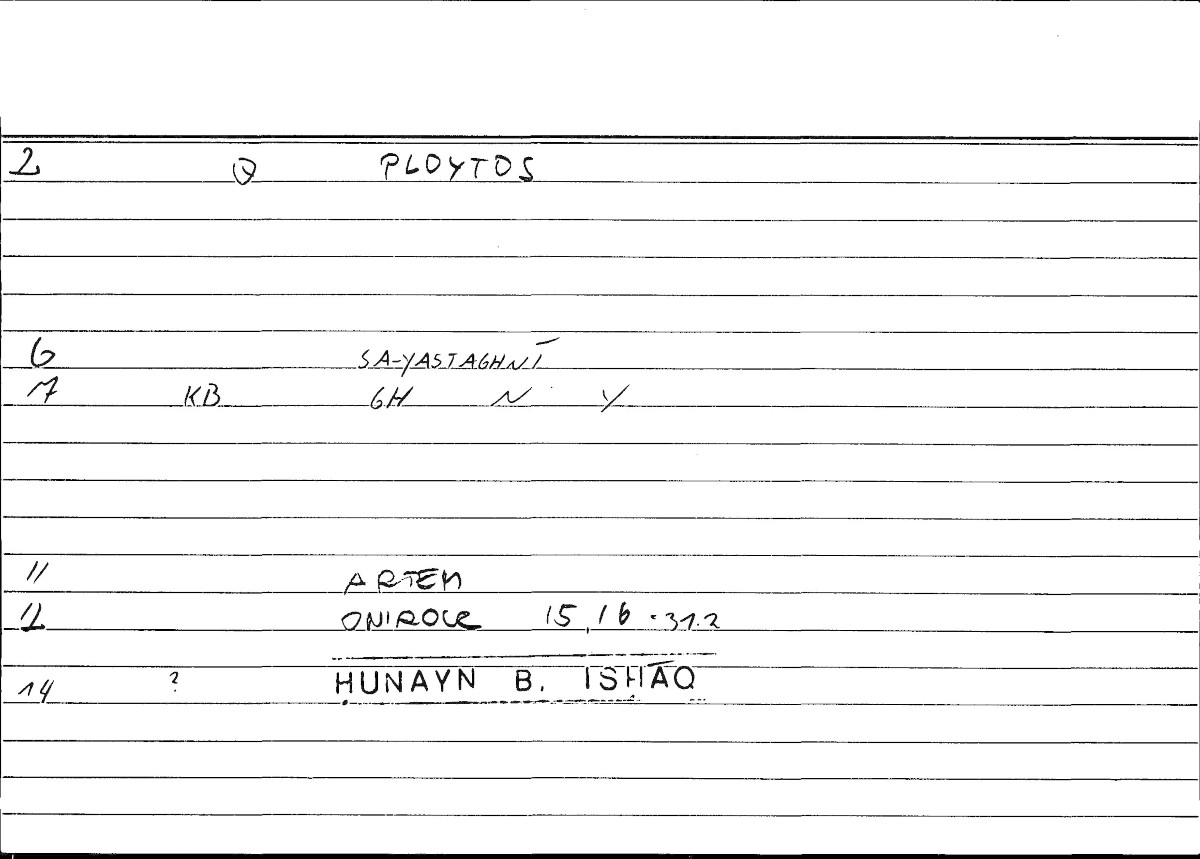 2 Q PLOYTOS
6 SA-YASTAGHNĪ
7 KB GH N Y
11 ARTEM
12 ONIROCR 15,16-31.2
14 ? ḤUNAYN B. ISḤĀQ